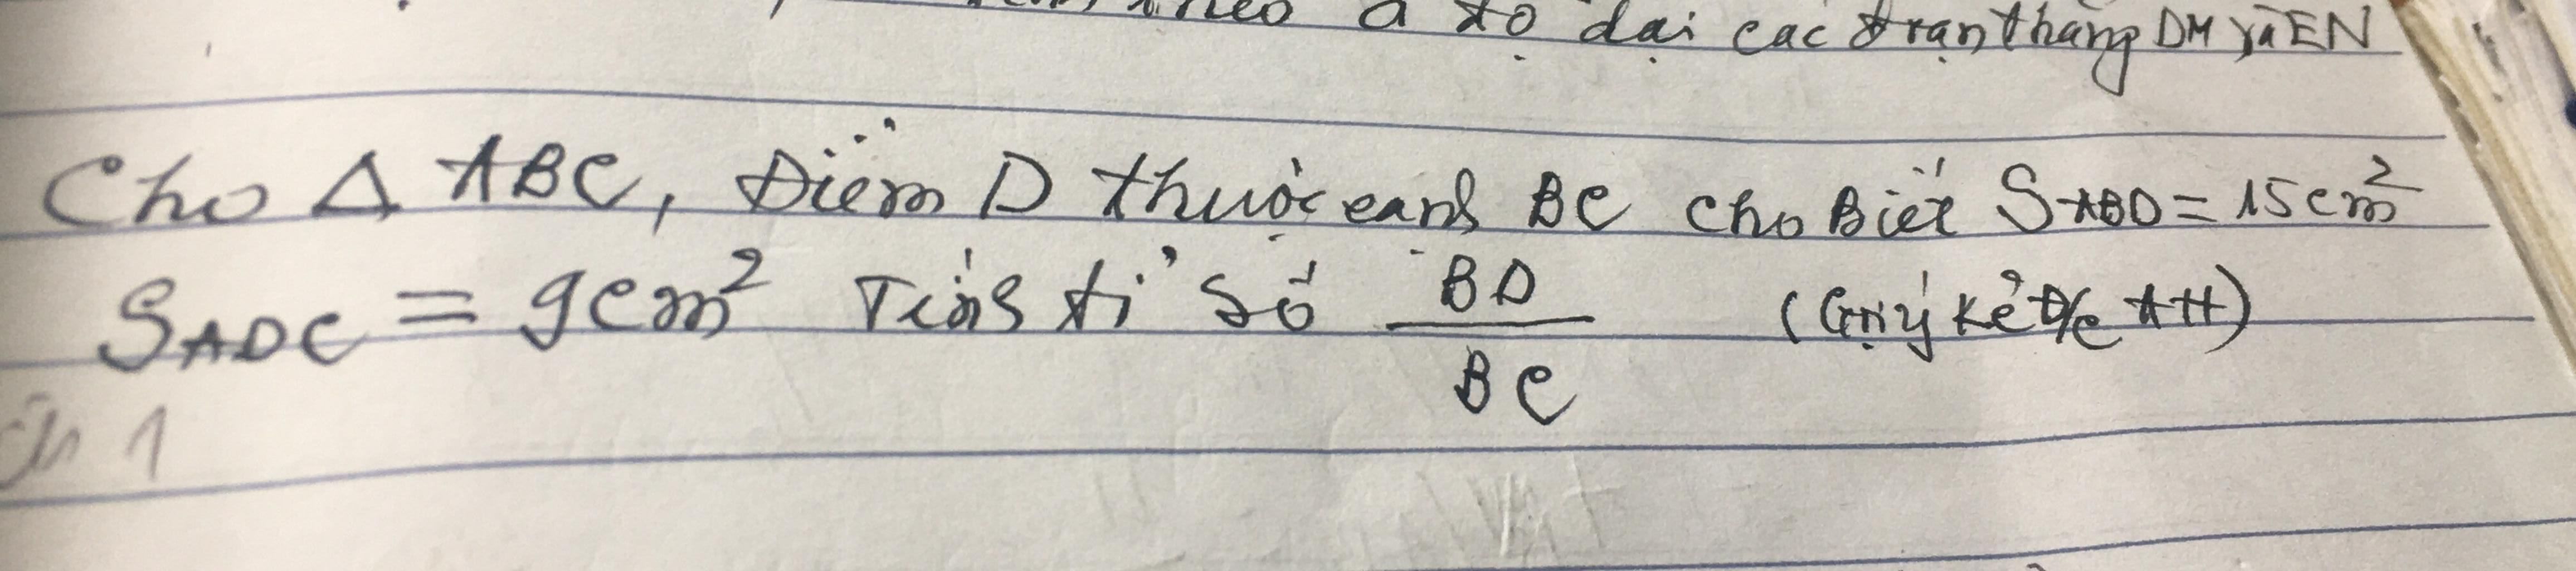 theo a độ dài các đoạn thẳng DM và EN
Cho Δ ABC, Điểm D thuộc cạnh BC cho Biết SABD = 15cm²
SADC = 9cm² Tính tỉ số BD/BC (Gợi ý kẻ Đ/c AH)